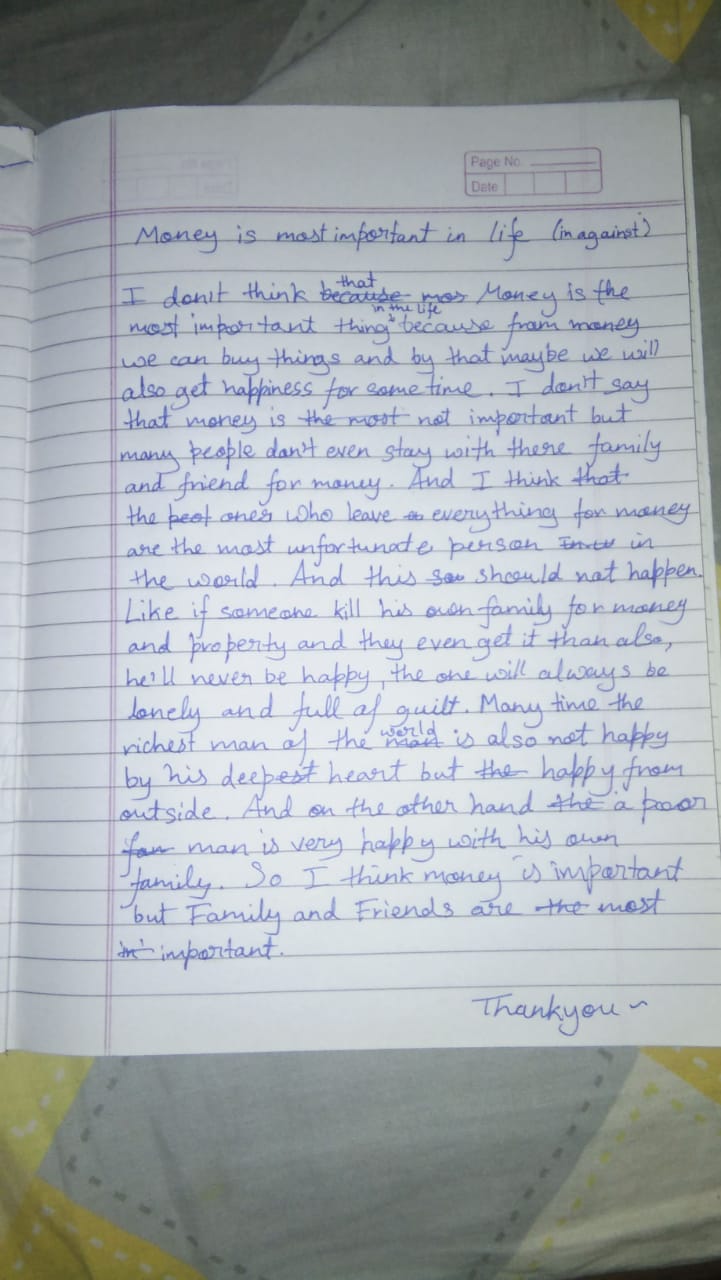 Page No.
Date
Money is most important in life (in against)
that
I don't think because mos Money is the
in the life
most important thing because from money
we can buy things and by that maybe we will
also get happiness for some time. I don't say
that money is the most not important but
many people don't even stay with there family
and friend for money. And I think that
the best ones who leave everything for money
are the most unfortunate person in
the world. And this should not happen.
Like if someone kill his own family for money
and property and they even get it than also,
he'll never be happy, the one will always be
lonely and full of guilt. Many time the
world
richest man of the man is also not happy
by his deepest heart but the happy from
outside. And on the other hand the a poor
man is very happy with his own
family. So I think money is important
but Family and Friends are the most
important.
Thankyou ~